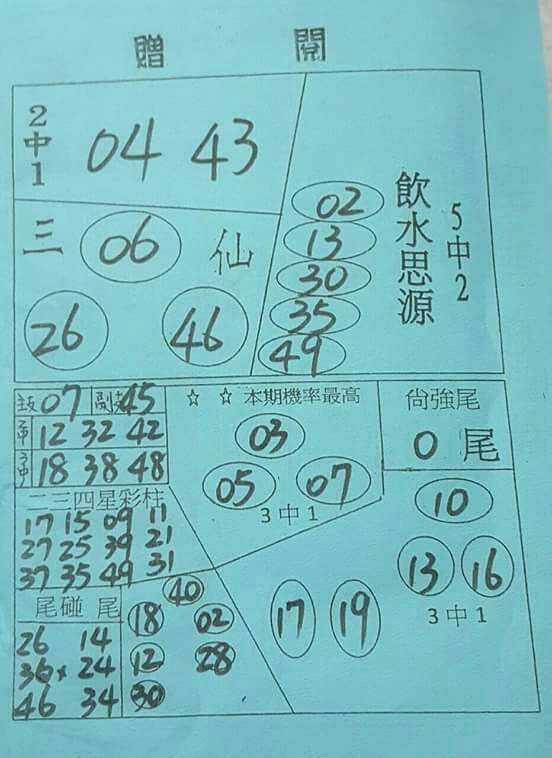 贈 閱
2中1
04 43
三 06 仙
26 46
飲水思源
5中2
02
13
30
35
49
07 45
12 32 42
18 38 48
二三四星彩柱
17 15 09 11
27 25 39 21
37 35 49 31
尾碰尾
26 14
36 x 24
46 34
☆ ☆ 本期機率最高
03
05 07
3中1
尙強尾
0 尾
10
13 16
3中1
40
18 02
12 28
30
17 19